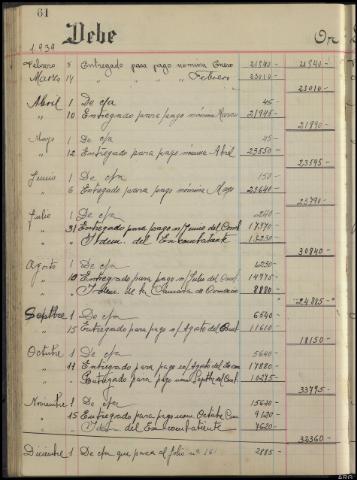 61
Debe
1939
Febrero 8 Entregado para pago nomina Enero 21840.- 21840.-
Marzo 14 " " " " Febrero 23010.-
23010.-
Abril 1 De c/a 45.-
" 10 Entregado para pago nómina Marzo 21945.-
21990.-
Mayo 1 De c/a 45.-
" 12 Entregado para pago nómina Abril 23550.-
23595.-
Junio 1 De c/a 150.-
" 6 Entregado para pago nómina Mayo 23640.-
23790.-
Julio 1 De c/a 240.-
" 31 Entregado para pago n/ Junio del
" Idem. del Excombatiente
30840.-
Agosto 1 De c/a 6230.-
" 10 Entregado para pago n/ Julio del 14975.-
" Idem de la Cámara de Comercio 8880.-
24815.-
Septbre 1 De c/a 6540.-
" 15 Entregado para pago n/ Agosto del 11610.-
18150.-
Octubre 1 De c/a 5640.-
" 11 Entregado para pago n/ Agosto del 17880.-
" Entregado para pago 10275.-
33795.-
Noviembre 1 De c/a 15620.-
" 15 Entregado para pago Octubre 9120.-
" Idem del Excombatiente 7620.-
32360.-
Diciembre 1 De c/a que pasa al folio nº 161 2885.-